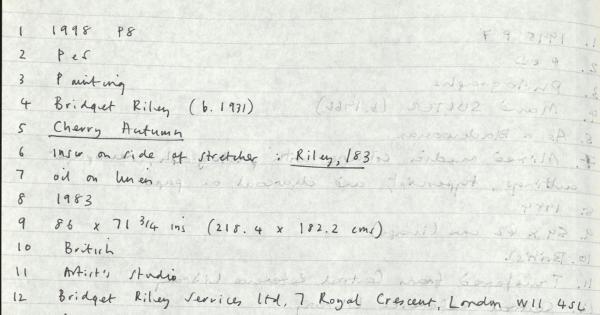 1 1998 P8
2 PeS
3 Painting
4 Bridget Riley (b. 1931)
5 Cherry Autumn
6 Inscr on side of stretcher : Riley, /83
7 oil on linen
8 1983
9 86 x 71 3/4 ins (218.4 x 182.2 cms)
10 British
11 Artist's studio
12 Bridget Riley Services Ltd, 7 Royal Crescent, London W11 4SL